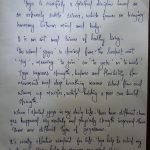 Yoga is essentially a spiritual discipline based on
an extremely subtle science, which focuses on bringing
harmony between mind and body.
It is an art and science of healthy living.
The word yoga is derived from the Sanskrit root
'Yuj', meaning 'to join' or 'to yoke' or 'to unite'.
Yoga improves strength, balance and flexibility. Slow
movement and deep breathing increase blood flow and
warm up muscles, while holding a pose can build
strength.
When I started yoga in my daily life there have different
yoga happened my mentally and physically strength improved
There are different type of
It's really effective for life. Yoga help to